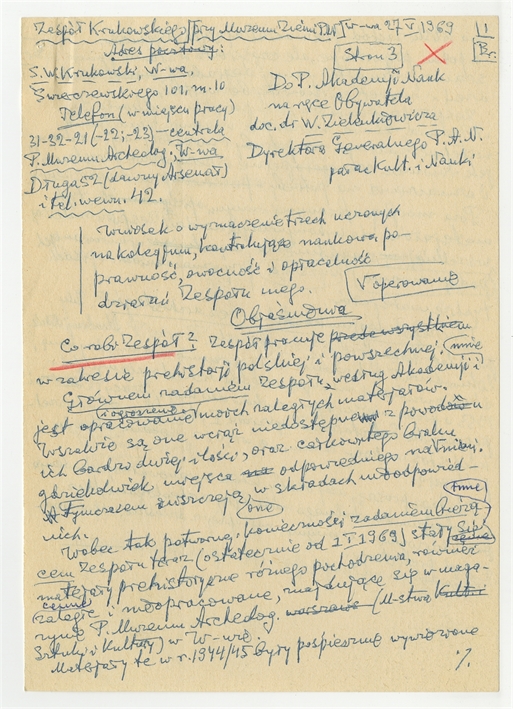 Zespół Krukowskiego przy Muzeum Ziemi PAN W-wa 27 V 1969
1
Br.
Adres pocztowy:
Stron 3
S. W. Krukowski, W-wa,
Świerczewskiego 101, m. 10
Telefon (w miejscu pracy)
31-32-21 (-22; -23) – centrala
P. Muzeum Archeolog. W-wa
Długa 52 (dawny Arsenał)
i tel. wewn. 42.
Do P. Akademji Nauk
na ręce Obywatela
doc. dr W. Zielenkiewicza
Dyrektora Generalnego P.A.N.
pałac Kult. i Nauki
Wniosek o wyznaczenie trzech uczonych
na kolegjum, kontrolujące naukową po-
prawność, owocność i opłacalność
działań Zespołu mego.
V operowanie
Objaśnienia
Co robi Zespół? Zespół pracuje przedewszystkiem
w zakresie prehistorji polskiej i powszechnej.
Głównem zadaniem Zespołu, według Akademji i mnie
jest opracowanie i ogłoszenie moich zaległych materjałów.
Wszakże są one wciąż niedostępne z powodu
ich bardzo dużej ilości, oraz całkowitego braku
gdziekolwiek miejsca odpowiedniego na
Tymczasem one niszczeją, w składach nieodpowied-
nich.
Wobec tak potwornej konieczności zadaniem bieżą-
cem Zespołu teraz (ostatecznie od 1 I 1969) stały się
materjały prehistoryczne różnego pochodzenia, również
zaległe i nieopracowane, znajdujące się w maga-
zynie P. Muzeum Archeolog. (M-stwa
Sztuki i Kultury) w W-wie.
Materjały te w r. 1944/45 były pośpiesznie wywiezione
./.